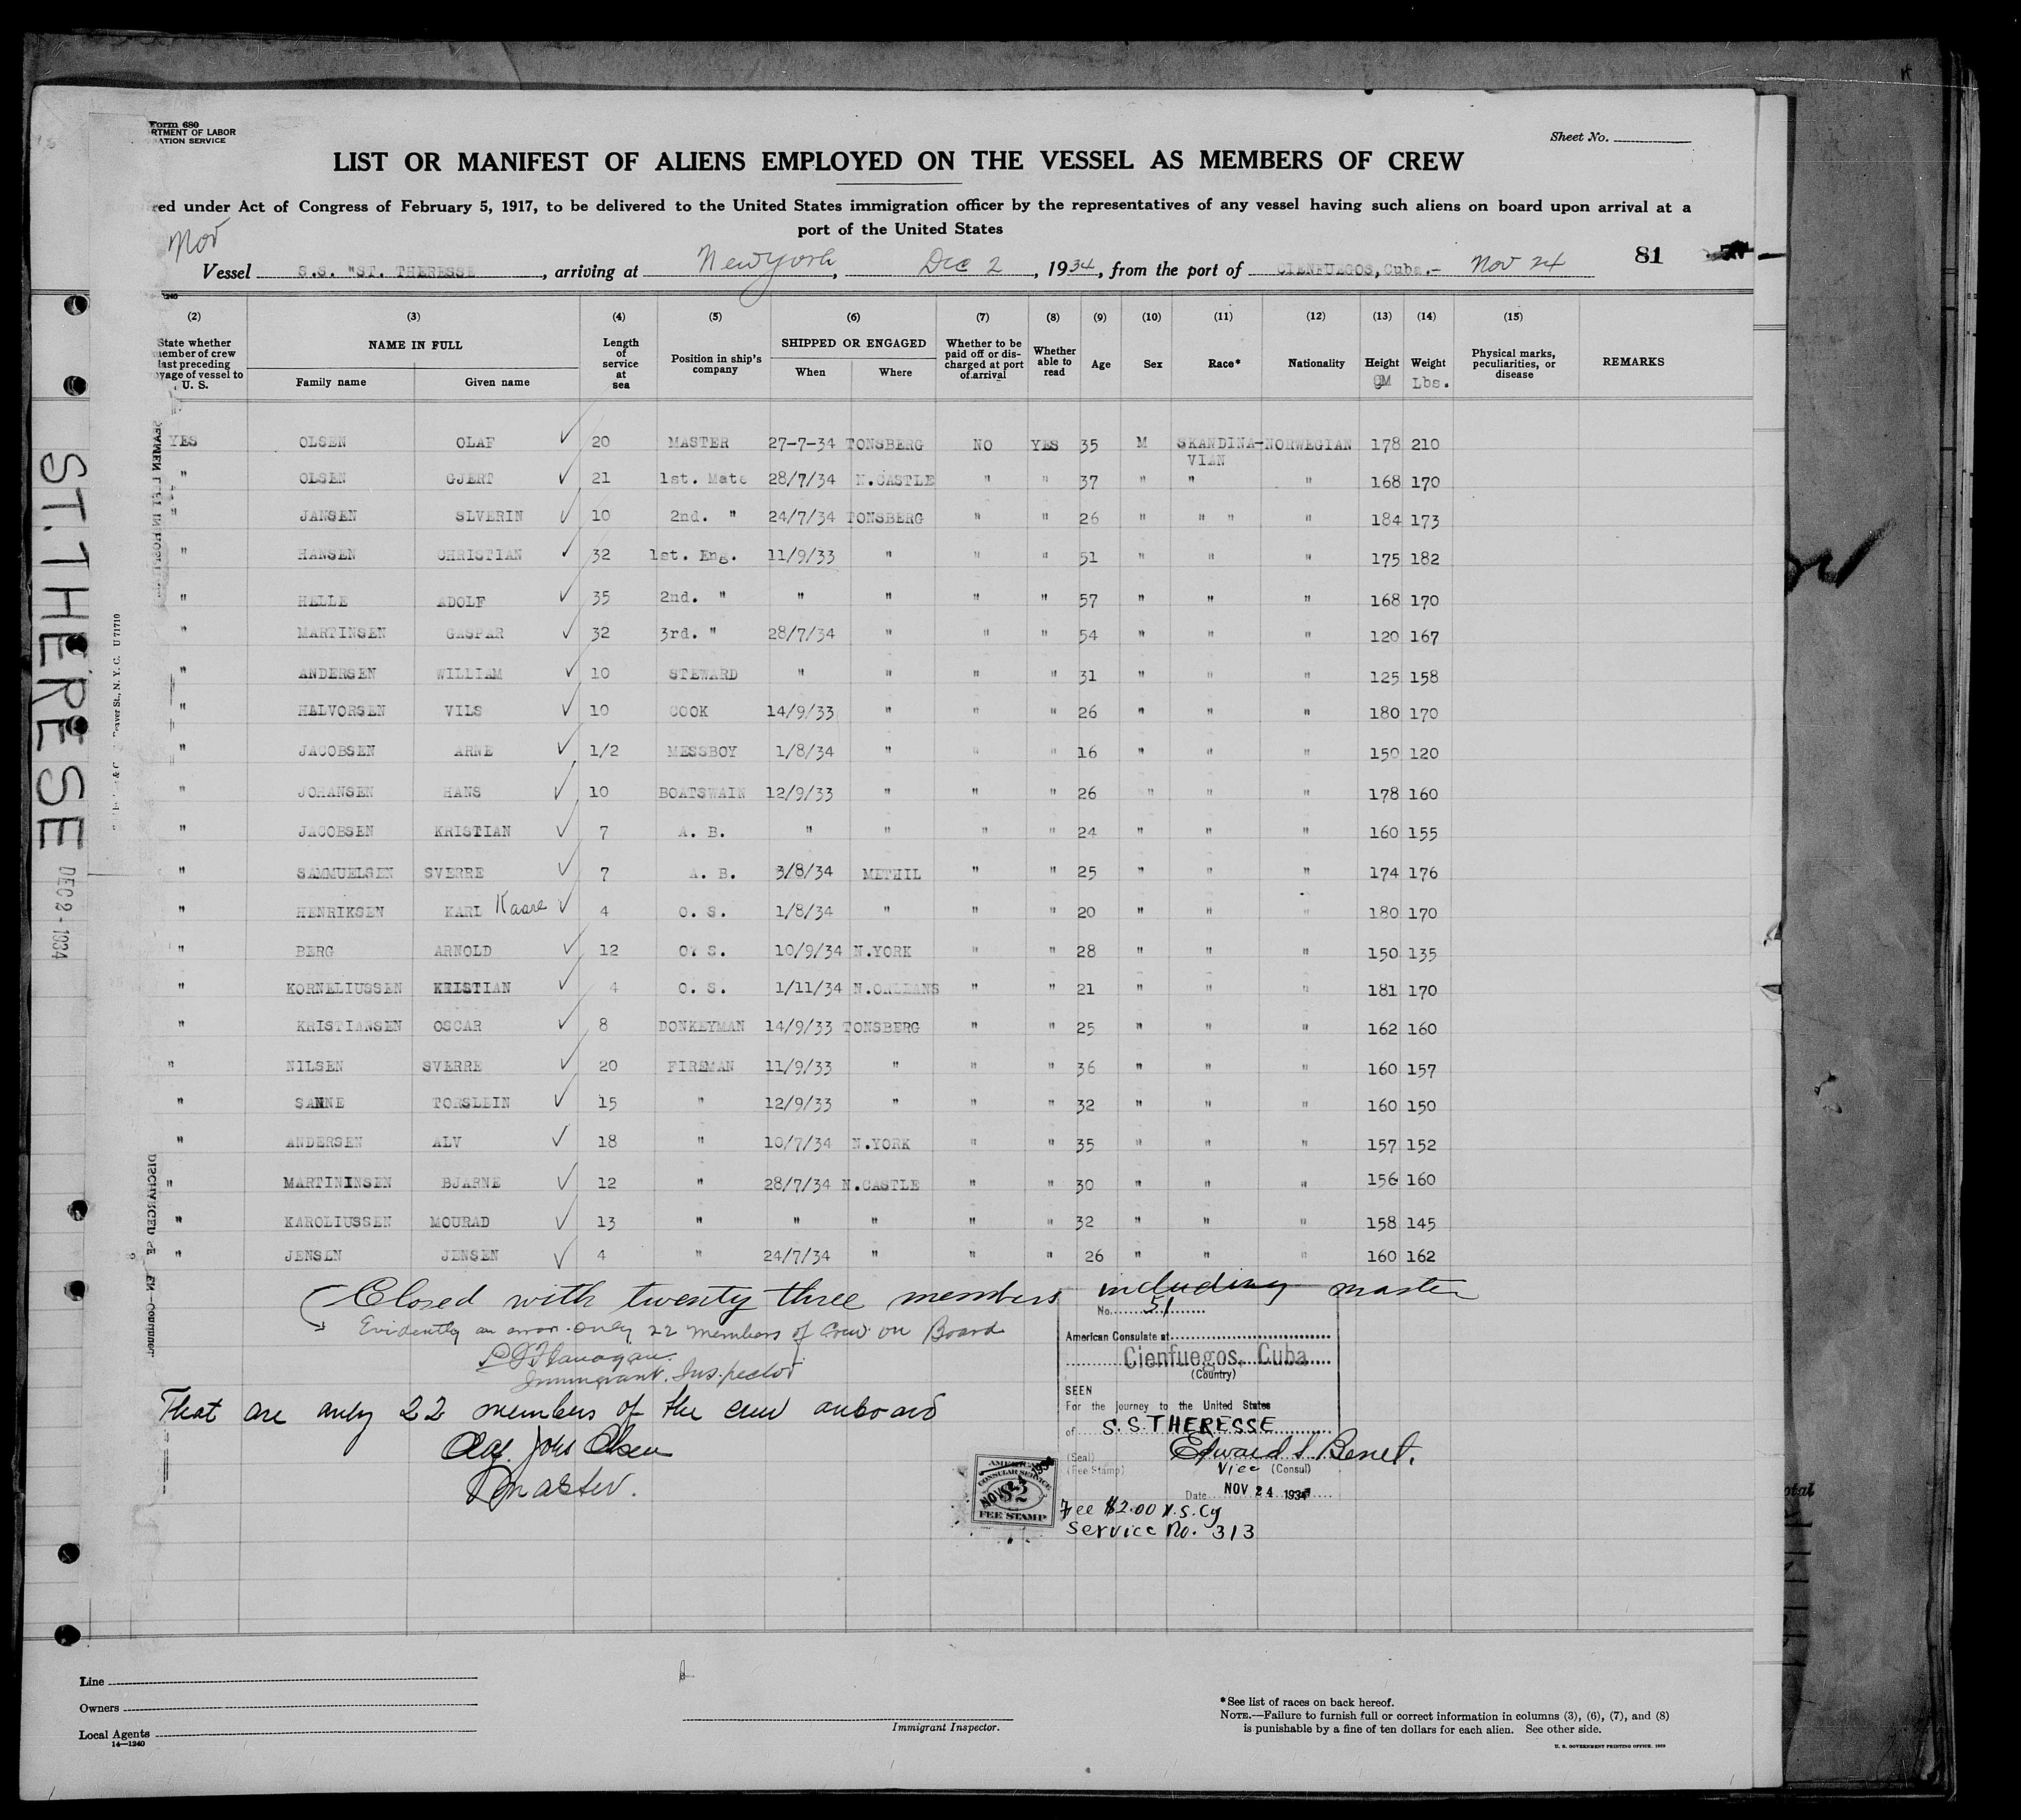 Form 680
RTMENT OF LABOR
ATION SERVICE
Sheet No.
LIST OR MANIFEST OF ALIENS EMPLOYED ON THE VESSEL AS MEMBERS OF CREW
red under Act of Congress of February 5, 1917, to be delivered to the United States immigration officer by the representatives of any vessel having such aliens on board upon arrival at a
port of the United States
Nov
Vessel S.S. "ST. THERESSE, arriving at New York, Dec 2, 1934, from the port of CIENFUEGOS, Cuba.- Nov 24
81
(2) (3) (4) (5) (6) (7) (8) (9) (10) (11) (12) (13) (14) (15)
State whether member of crew last preceding voyage of vessel to U. S.
NAME IN FULL
Family name Given name
Length of service at sea
Position in ship's company
SHIPPED OR ENGAGED
When Where
Whether to be paid off or discharged at port of arrival
Whether able to read
Age Sex Race* Nationality
Height CM
Weight Lbs.
Physical marks, peculiarities, or disease
REMARKS
YES OLSEN OLAF ✓ 20 MASTER 27-7-34 TONSBERG NO YES 35 M SKANDINA-VIAN NORWEGIAN 178 210
" OLSEN GJERT ✓ 21 1st. Mate 28/7/34 N.CASTLE " " 37 " " " 168 170
" JANSEN SLVERIN ✓ 10 2nd. " 24/7/34 TONSBERG " " 26 " " " " 184 173
" HANSEN CHRISTIAN ✓ 32 1st. Eng. 11/9/33 " " " 51 " " " 175 182
" HELLE ADOLF ✓ 35 2nd. " " " " " 57 " " " 168 170
" MARTINSEN GASPAR ✓ 32 3rd. " 28/7/34 " " " 54 " " " 120 167
" ANDERSEN WILLIAM ✓ 10 STEWARD " " " " 31 " " " 125 158
" HALVORSEN VILS ✓ 10 COOK 14/9/33 " " " 26 " " " 180 170
" JACOBSEN ARNE ✓ 1/2 MESSBOY 1/8/34 " " " 16 " " " 150 120
" JOHANSEN HANS ✓ 10 BOATSWAIN 12/9/33 " " " 26 " " " 178 160
" JACOBSEN KRISTIAN ✓ 7 A. B. " " " " 24 " " " 160 155
" SAMMUELSEN SVERRE ✓ 7 A. B. 3/8/34 METHIL " " 25 " " " 174 176
" HENRIKSEN KARL Kaare ✓ 4 O. S. 1/8/34 " " " 20 " " " 180 170
" BERG ARNOLD ✓ 12 O. S. 10/9/34 N.YORK " " 28 " " " 150 135
" KORNELIUSSEN KRISTIAN ✓ 4 O. S. 1/11/34 N.ORLEANS " " 21 " " " 181 170
" KRISTIANSEN OSCAR ✓ 8 DONKEYMAN 14/9/33 TONSBERG " " 25 " " " 162 160
" NILSEN SVERRE ✓ 20 FIREMAN 11/9/33 " " " 36 " " " 160 157
" SANNE TORSLEIN ✓ 15 " 12/9/33 " " " 32 " " " 160 150
" ANDERSEN ALV ✓ 18 " 10/7/34 N.YORK " " 35 " " " 157 152
" MARTININSEN BJARNE ✓ 12 " 28/7/34 N.CASTLE " " 30 " " " 156 160
" KAROLIUSSEN MOURAD ✓ 13 " " " " " 32 " " " 158 145
" JENSEN JENSEN ✓ 4 " 24/7/34 " " " 26 " " " 160 162
Closed with twenty three members including master
Evidently an error. only 22 members of Crew on Board
Flanagan
Immigrant. Inspector
That are only 22 members of the crew onboard
Olaf John Olsen
Master.
No. 51
American Consulate at
Cienfuegos, Cuba
(Country)
SEEN
For the journey to the United States
of S.S. THERESSE
(Seal)
Edward S. Benet.
(Fee Stamp)
Vice (Consul)
Date NOV 24 1934
Fee $2.00 U.S. Cy
Service No. 313
AMERICAN
CONSULAR SERVICE
NOV 24 1934
$2
FEE STAMP
ST. THERESE
DEC 2 - 1934
Line
Owners
Local Agents
14—1240
Immigrant Inspector.
*See list of races on back hereof.
NOTE.—Failure to furnish full or correct information in columns (3), (6), (7), and (8)
is punishable by a fine of ten dollars for each alien. See other side.
U. S. GOVERNMENT PRINTING OFFICE. 1929